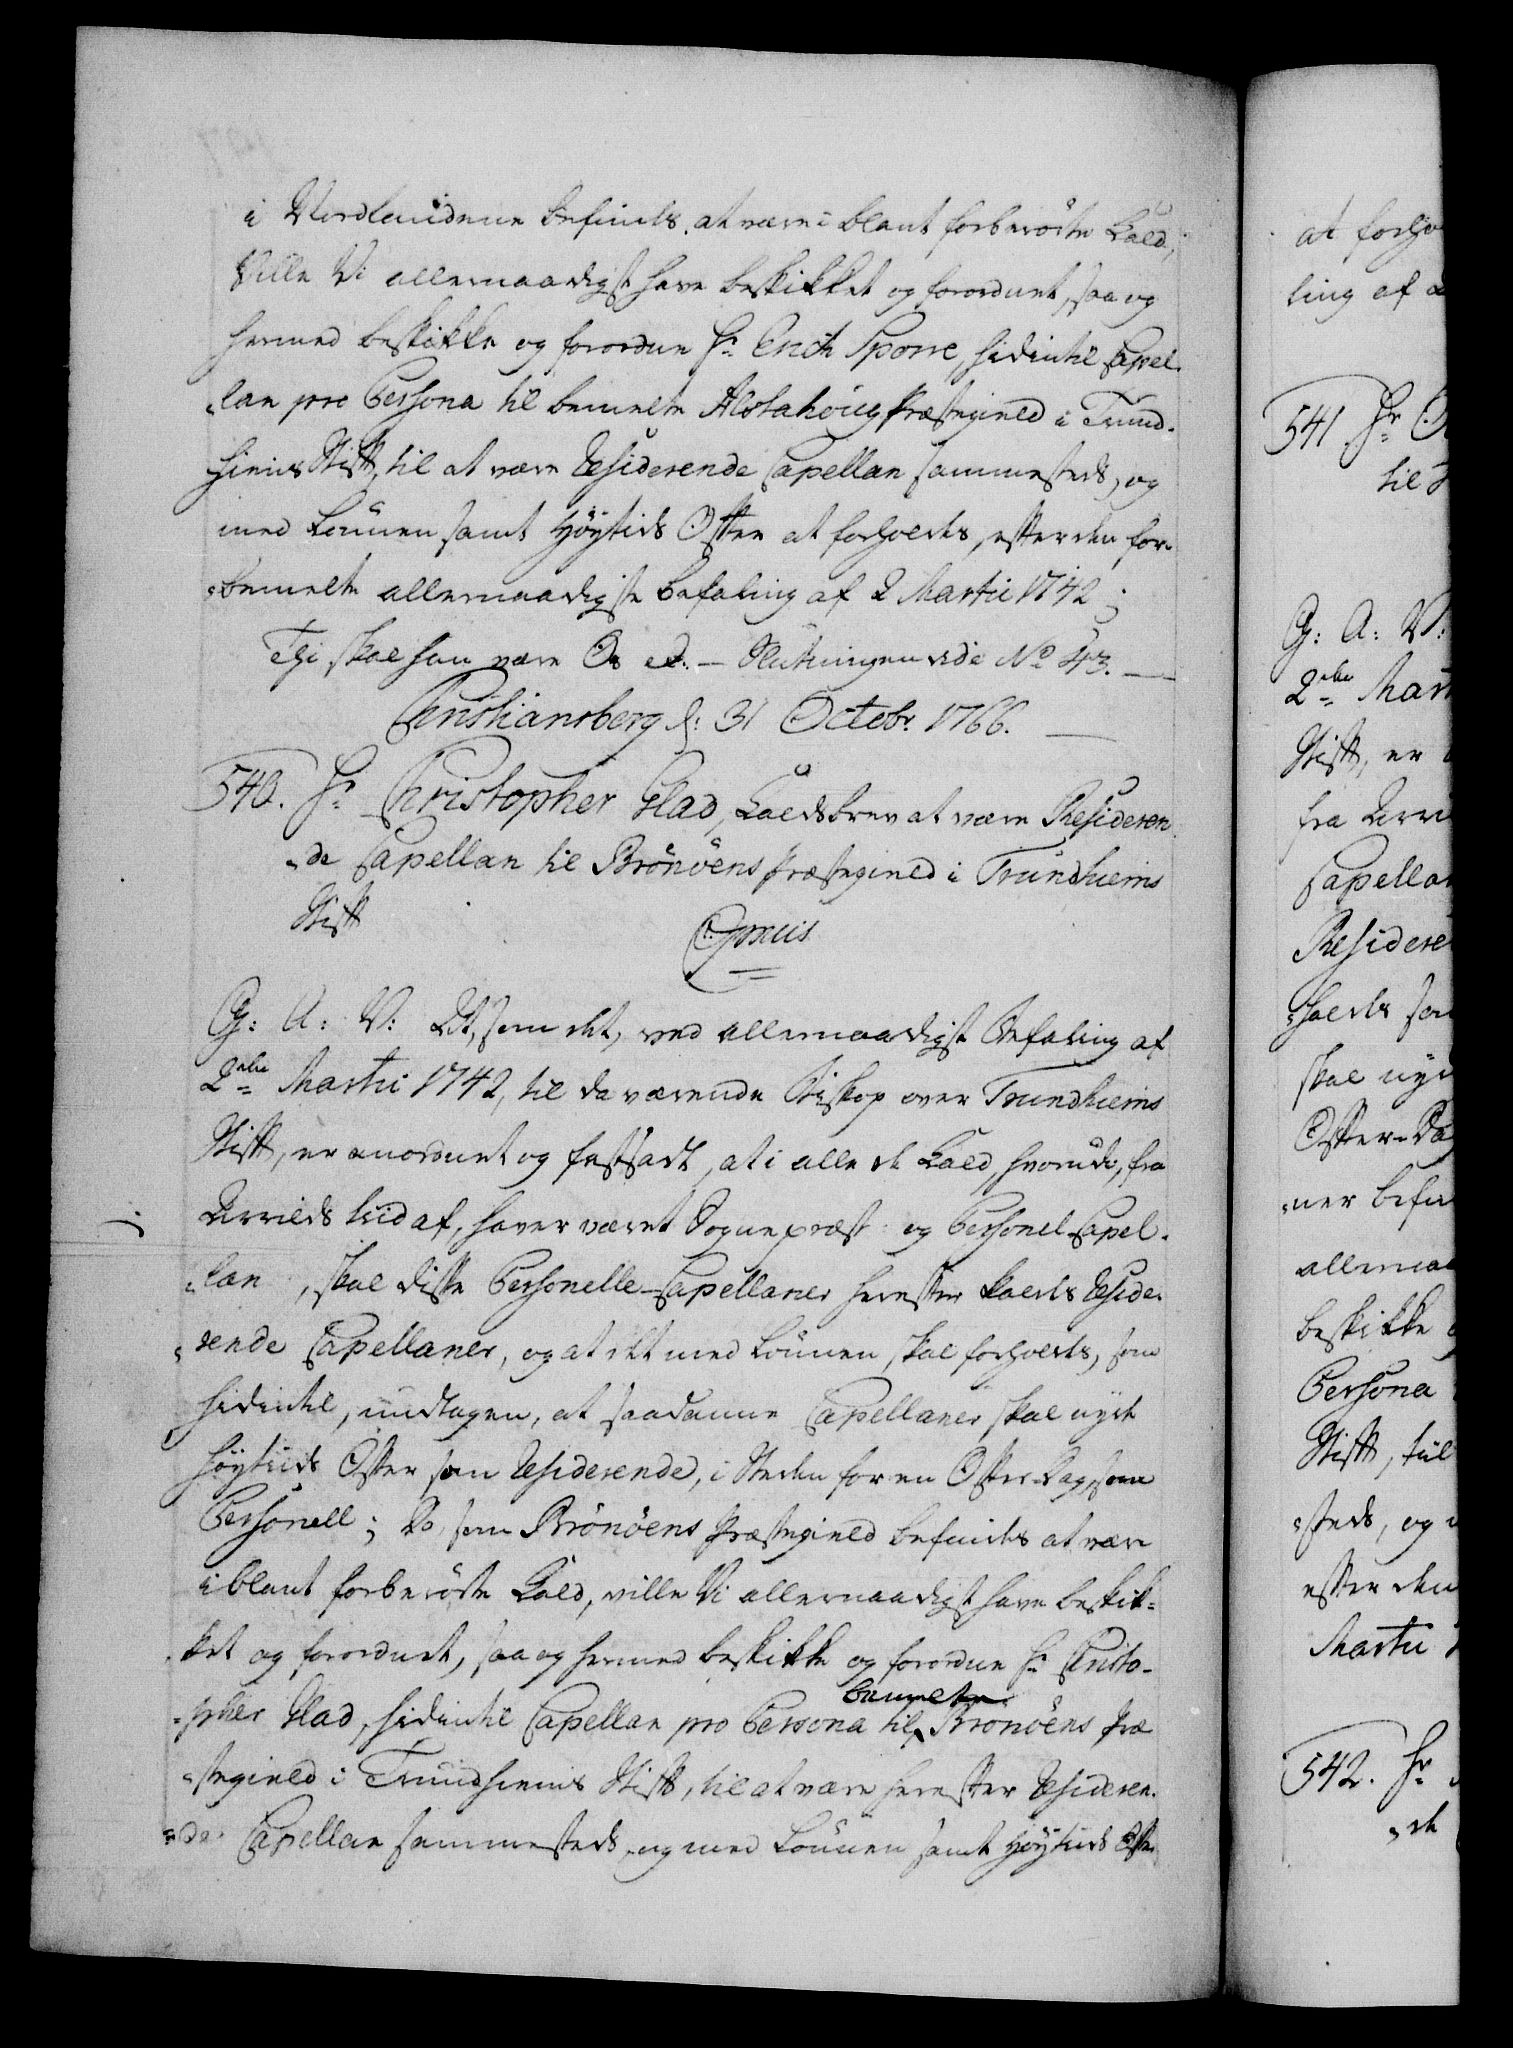 i Nordlandene befindes at være i blant forberörte Kald,
Ville Vi allernaadigst have beskikket og forordnet, saa og
hermed beskikke og forordne Hr Erich Sporre, hidindtil Capel-
-lan pro Persona til bemelte Alstahoug Præstegield i Trund-
hiems Stift, til at være Residerende Capellan sammesteds, og
med Lönnen samt Höytids Offer at forholdes, efter den for-
-bemelte allernaadigste Befaling af 2 Martii 1742;
Thi skal han være Os ed. – Slutningen vide No 43. –
Christiansberg d: 31 Octobr. 1766. –
540. Hr Christopher Glad, Kaldsbrev at være Resideren-
-de Capellan til Brönöens Præstegield i Trundhiems
Stift
Gratis
C: A: V: At, som det, ved allernaadigst Befaling af
2den Martii 1742, til da værende Biskop over Trundhiems
Stift, er anordnet og fastsadt, at i alle de Kald, hvorudi, fra
Arrilds tid af, haver været Sognepræst og Personel-Capel-
-lan, skal disse Personelle-Capellaner herefter kaldes Reside-
-rende Capellaner, og at det med Lönnen skal forholdes, som
hidindtil, undtagen, at saadanne Capellaner skal nyde
Höytiids Offer som Residerende, i Steden for en Offer-Dag, som
Personell; Da, som Brönöens Præstegield befindes at være
iblant forberörte Kald, ville Vi allernaadigst have beskik-
ket og forordnet, saa og hermed beskikke og forordne Hr Christo-
-pher Glad, hidindtil Capellan pro Persona til bemelte Brönöens Præ
-stegield i Trundhiems Stift, til at være herefter Resideren-
-de Capellan sammesteds, og med Lönnen samt Höytiids Offer
at forho
ling af
541 Hr
til
G: A: V:
2den Mart
Stift, er
fra Arri
Capellan
Residere
-holdes som
skal nyd
Offer-Da
-ner befin
allernaa
beskikke
Persona
Stift, til
-steds, og
efter den
Martii
542. Hr
-de